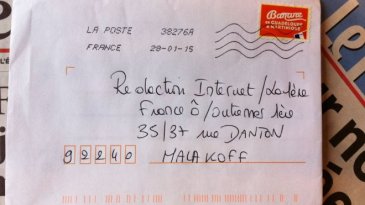 LA POSTE 38276A
FRANCE 29-01-15
Banane
DE GUADELOUPE
& MARTINIQUE
Redaction Internet /
France Ô / outremer 1ère
35/37 rue DANTON
92240 MALAKOFF